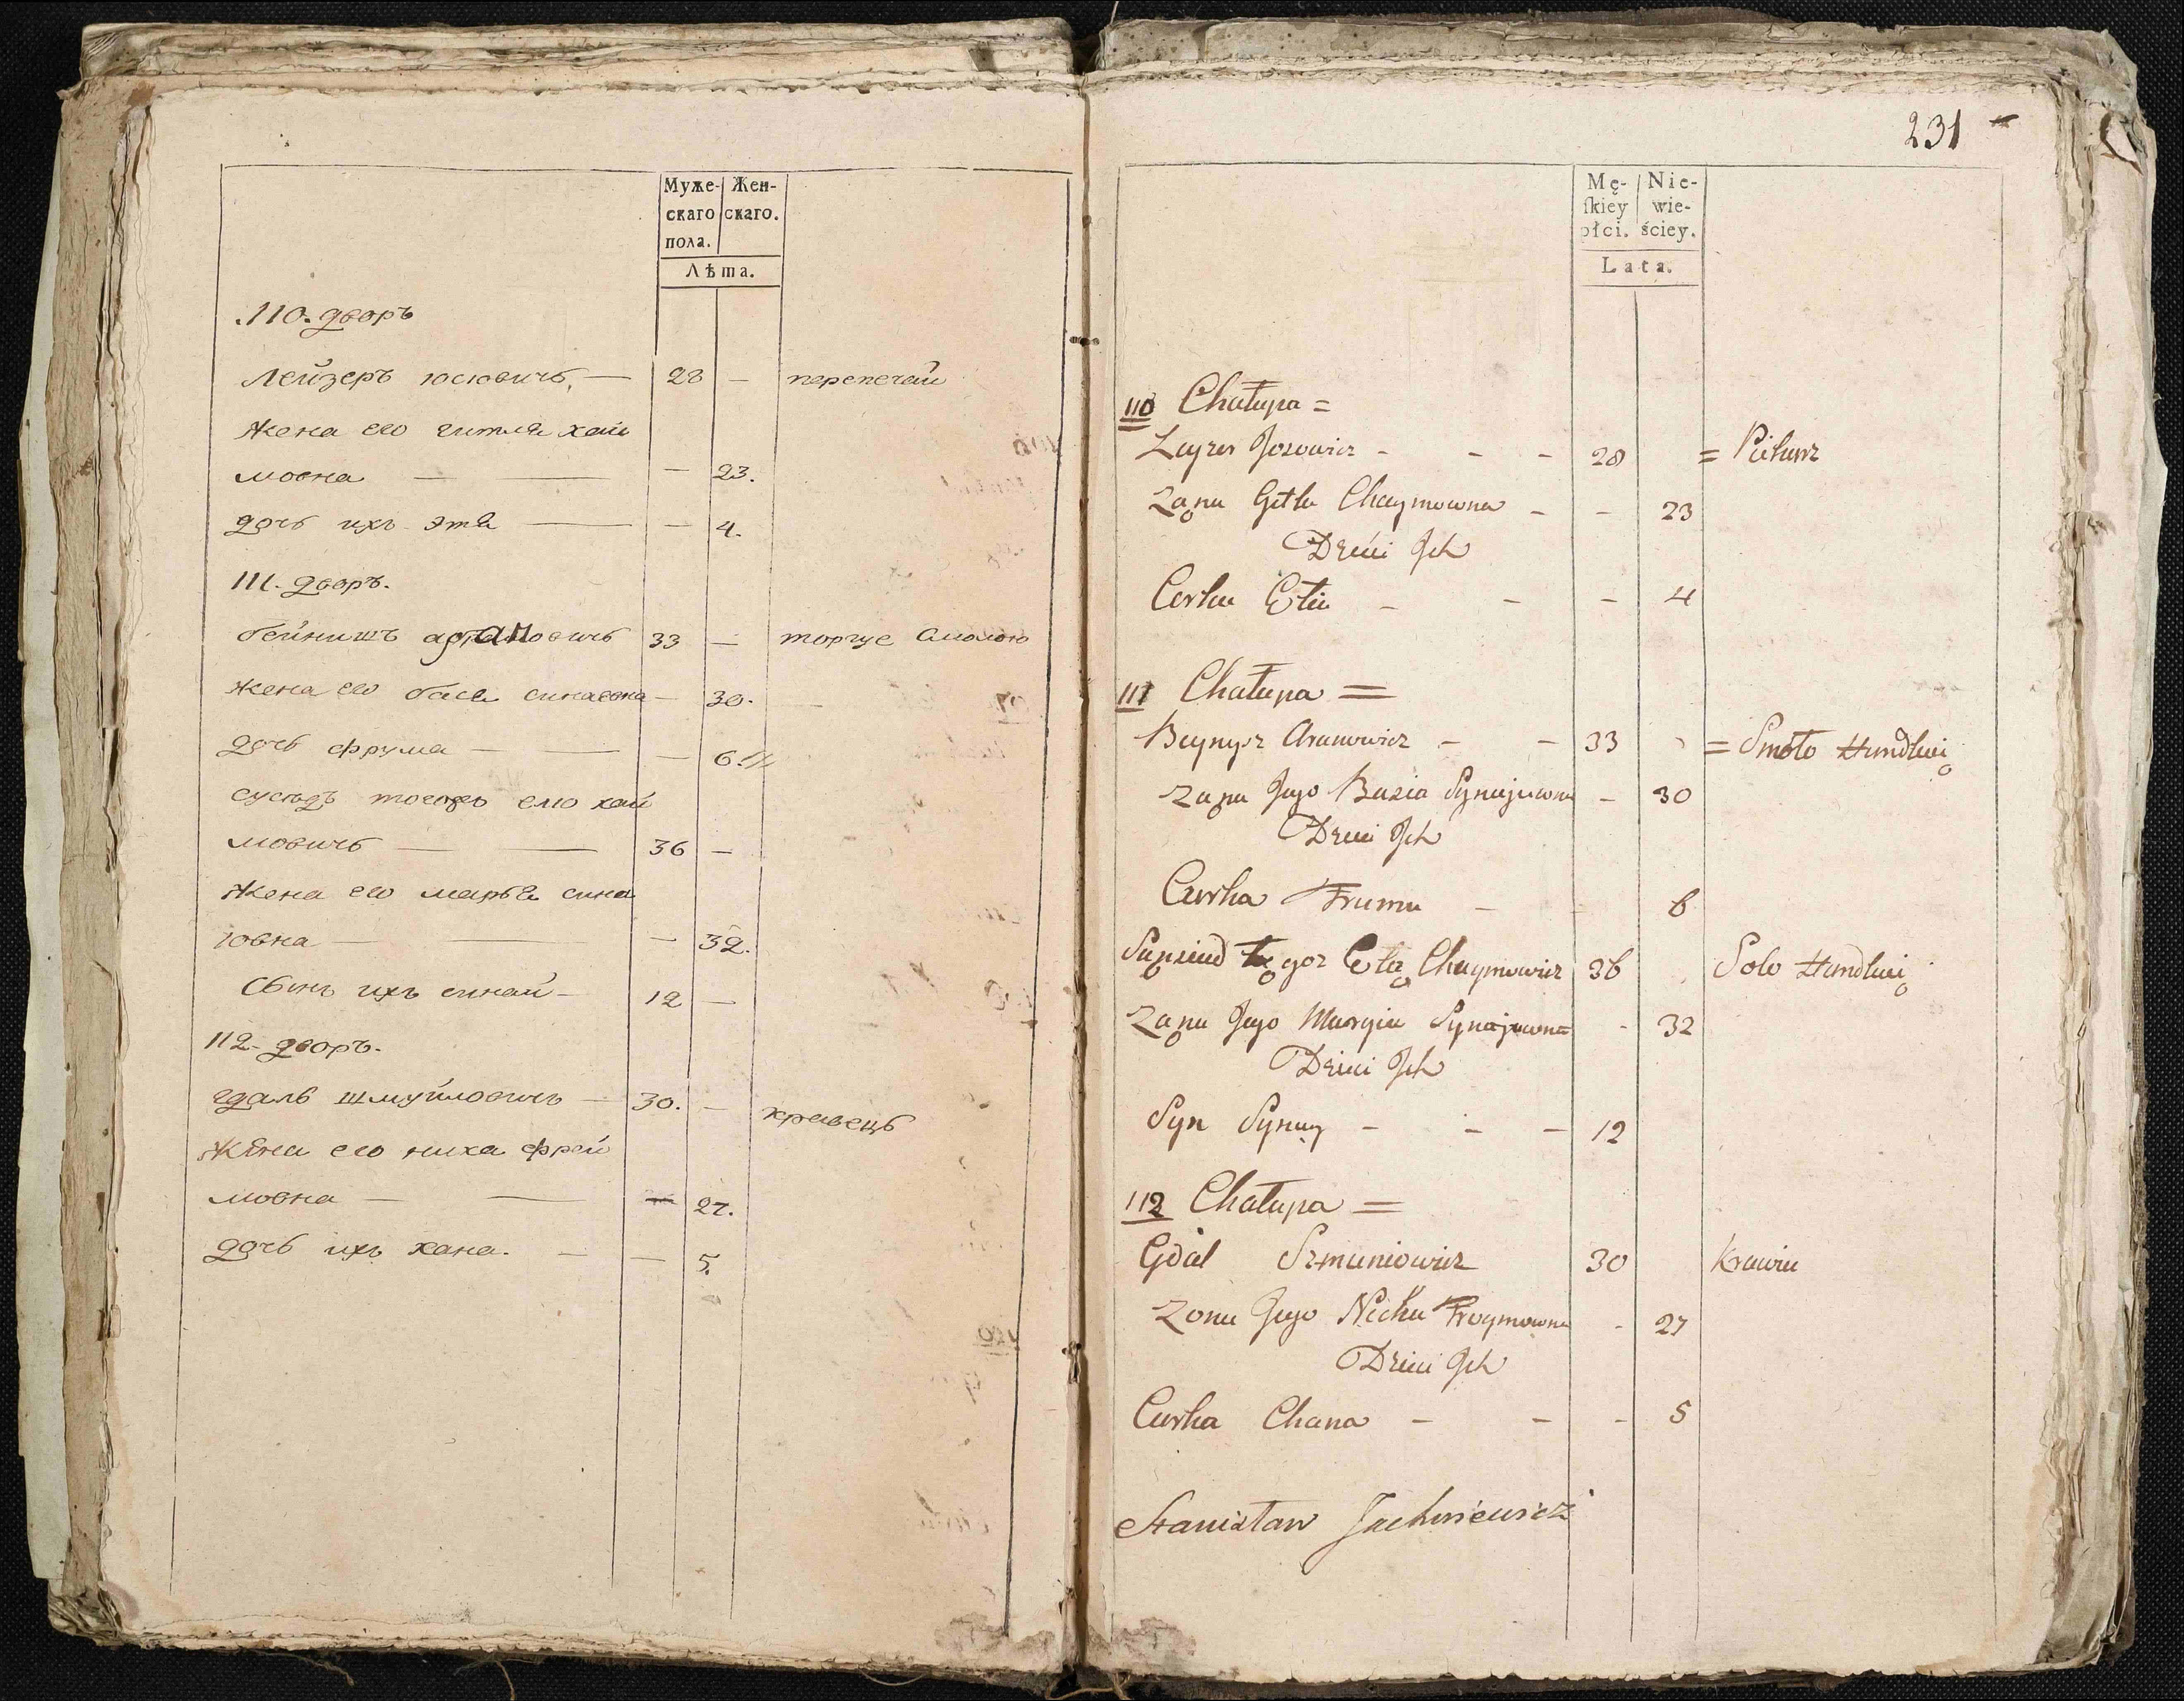 Муже- Жен-
скаго скаго.
пола.
Лѣта.
.110. дворъ
Лейзеръ юсювичъ, — 28 — перепечай
жена его гитля хай
мовна — — — 23.
дочъ ихъ этя — — 4.
111. дворъ.
бейнишъ арановичъ 33 — торгуе смолою
жена его бася синаевна — 30.
дочъ фрума — — — 6.
сусѣдъ тогожъ елю хай
мовичъ — — 36 —
жена его марья сина
ювна — — — 32.
сынъ ихъ синай — 12 —
112. дворъ.
гдаль шмуйловичъ — 30. — кравецъ
жена его ниха фрой
мовна — — — 27.
дочъ ихъ хана. — — 5.
231
Mę- Nie-
ſkiey wie-
płci. ściey.
Lata.
110 Chałupa =
Layzer Josowicz - - - 28 = Piekarz
Zona Gitla Chaymowna - - 23
Dzieci Jch
Corka Etia - - - 4
111 Chałupa =
Beynysz Aranowicz - - 33 = Smoło Handluię
Zona Jego Basia Synajowna - 30
Dzieci Jch
Curka Fruma - - 6
Sąsiad tegoz Elia Chaymowicz 36 Solo Handluię
Zona Jego Maryia Synajowna - 32
Dzieci Jch
Syn Synay - - - 12
112 Chałupa =
Gdal Szmuniowicz 30 Krawiec
Zona Jego Nicha Froymowna - 27
Dzieci Jch
Curka Chana - - - 5
Stanisław Jachniewicz